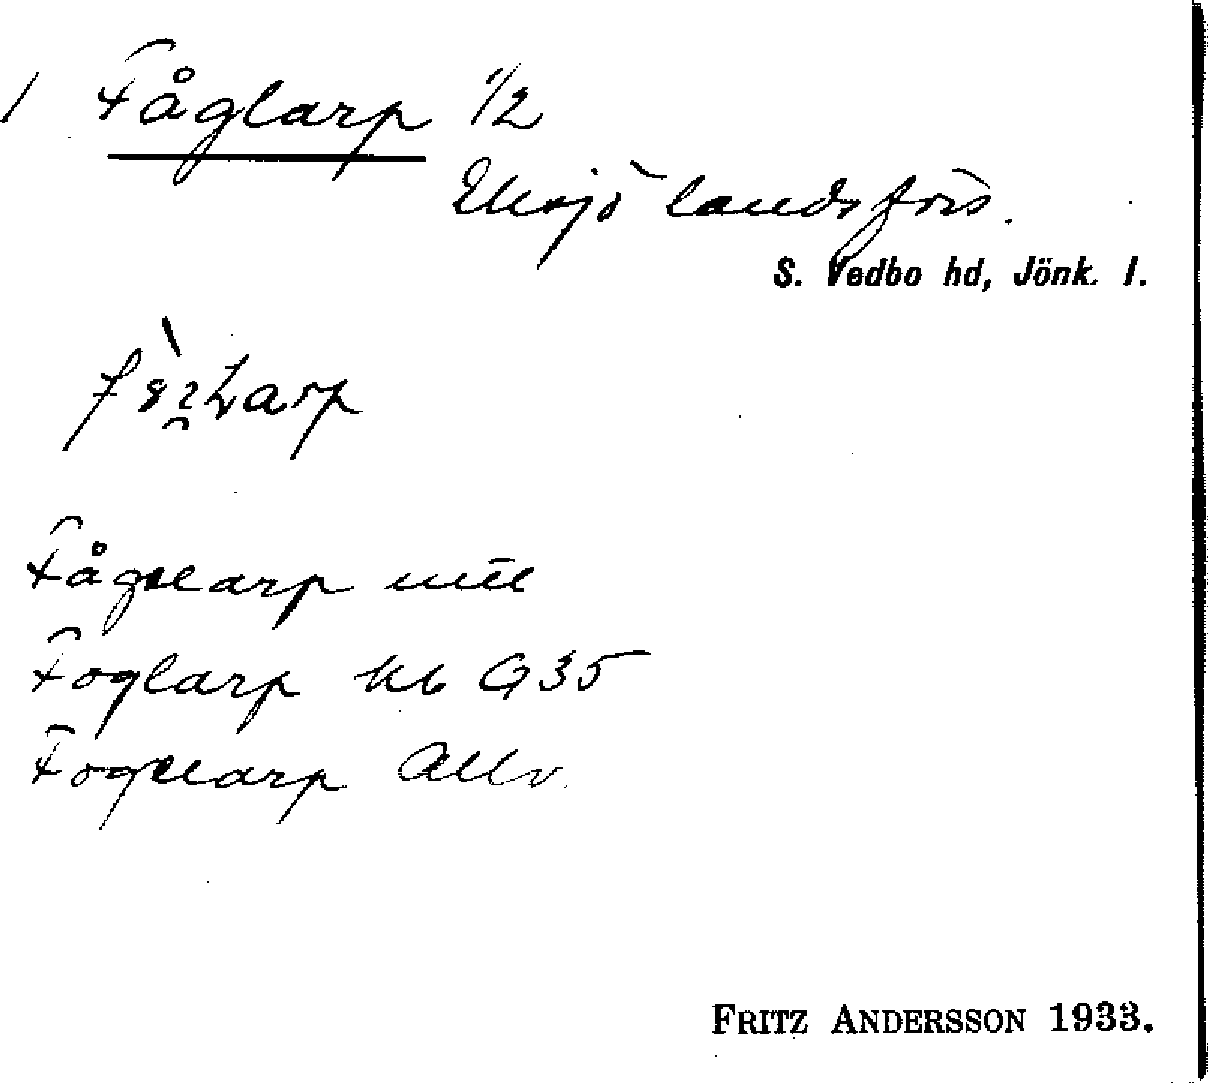 1 Fåglarp 1/2
Eksjö landsförs.
S. Vedbo hd, Jönk. l.
Fågelarp
Foglarp kb G35
Fogelarp Allv.
FRITZ ANDERSSON 1933.